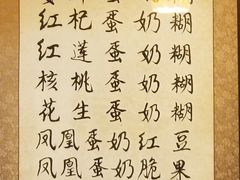 蛋奶糊
红杞蛋奶糊
红莲蛋奶糊
核桃蛋奶糊
花生蛋奶糊
凤凰蛋奶红豆
凤凰蛋奶脆果